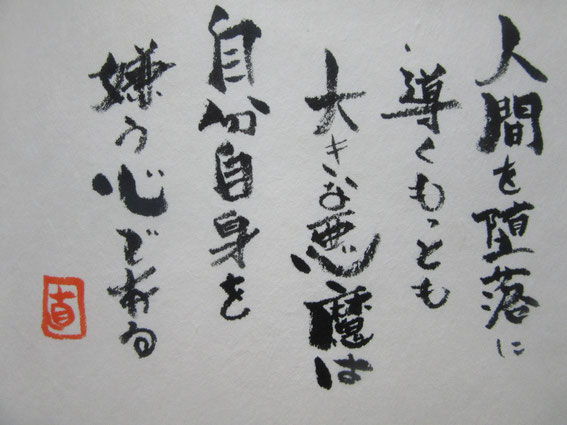 人間を堕落に
導くもっとも
大きな悪魔は
自分自身を
嫌う心である
直